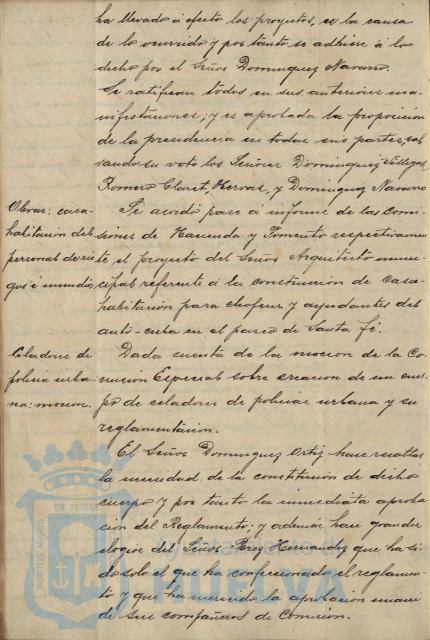 ha llevado á efecto los proyectos, es la causa
de lo ocurrido y por tanto se adhiere á lo
dicho por el Señor Dominguez Navarro.
Se ratifican todos en sus anteriores ma-
nifestaciones; y es aprobada la proposición
de la presidencia en todas sus partes, sal-
vando su voto los Señores Dominguez Villegas
Romero Claret, Hervas, y Dominguez Navarro
Obras: casa-
habitación del
personal de rie-
gos é incendios
Se acordó pase á informe de las Comi-
siones de Hacienda y Fomento respectivamen-
te el proyecto del Señor Arquitecto muni-
cipal referente á la construcción de casa-
habitación para chofeur y ayudantes del
auto-cuba en el parque de Santa Fé.
Celadores de
policia urba-
na: mocion.
Dada cuenta de la mocion de la Co-
mision Especial sobre creacion de un cuer-
po de celadores de policia urbana y su
reglamentación.
El Señor Dominguez Ortiz hace resaltar
la necesidad de la constitución de dicho
cuerpo y por tanto la inmediata aproba-
cion del Reglamento; y además hace grandes
elogios del Señor Perez Hernandez que ha si-
do solo el que ha confeccionado el reglamen-
to y que ha merecido la aprobacion unani
de sus compañeros de Comision.
PORTUS MARIS
ET TERRA
Ayuntamiento de